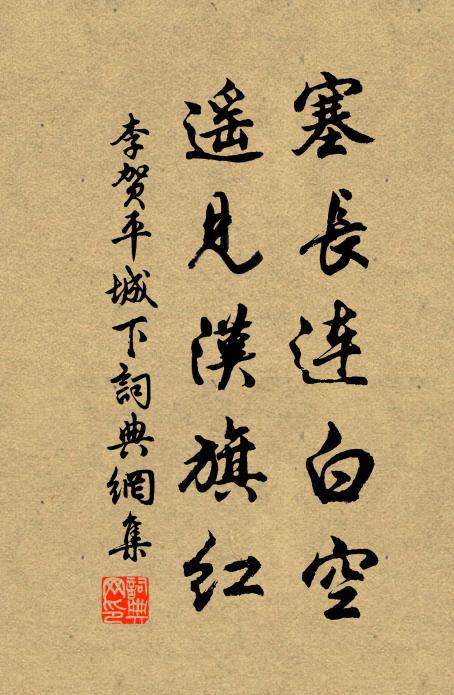 塞長连白空
遥見漢旗红
李贺平城下詞典網集
詞典网印